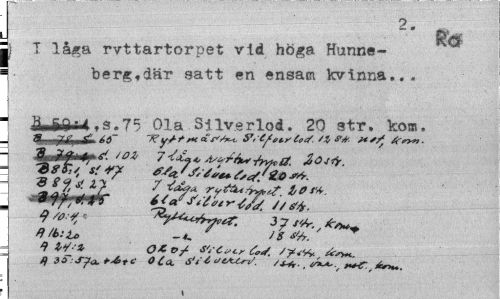 2.
Ra
I låga ryttartorpet vid höga Hunne-
berg,där satt en ensam kvinna...
B 59:1,s.75 Ola Silverlod. 20 str. kom.
B 78, s. 65 Ryttmästre Silfverlod. 12 str. not, kom.
B 79:1, s. 102 I låga ryttartorpet. 20 str.
B 85:1, s. 47 Ola Silverlod. 20 str.
B 89, s. 27 I låga ryttartorpet. 20 str.
B 97, s. 25 Ola Silverlod. 11 str.
A 10:4, Ryttartorpet. 37 str., kom.
A 16:20 -"- 18 str.
A 24:2 Olof Silverlod. 17 str., kom.
A 35:57a+b+c Ola Silverlov. 1 str., var., not., kom.